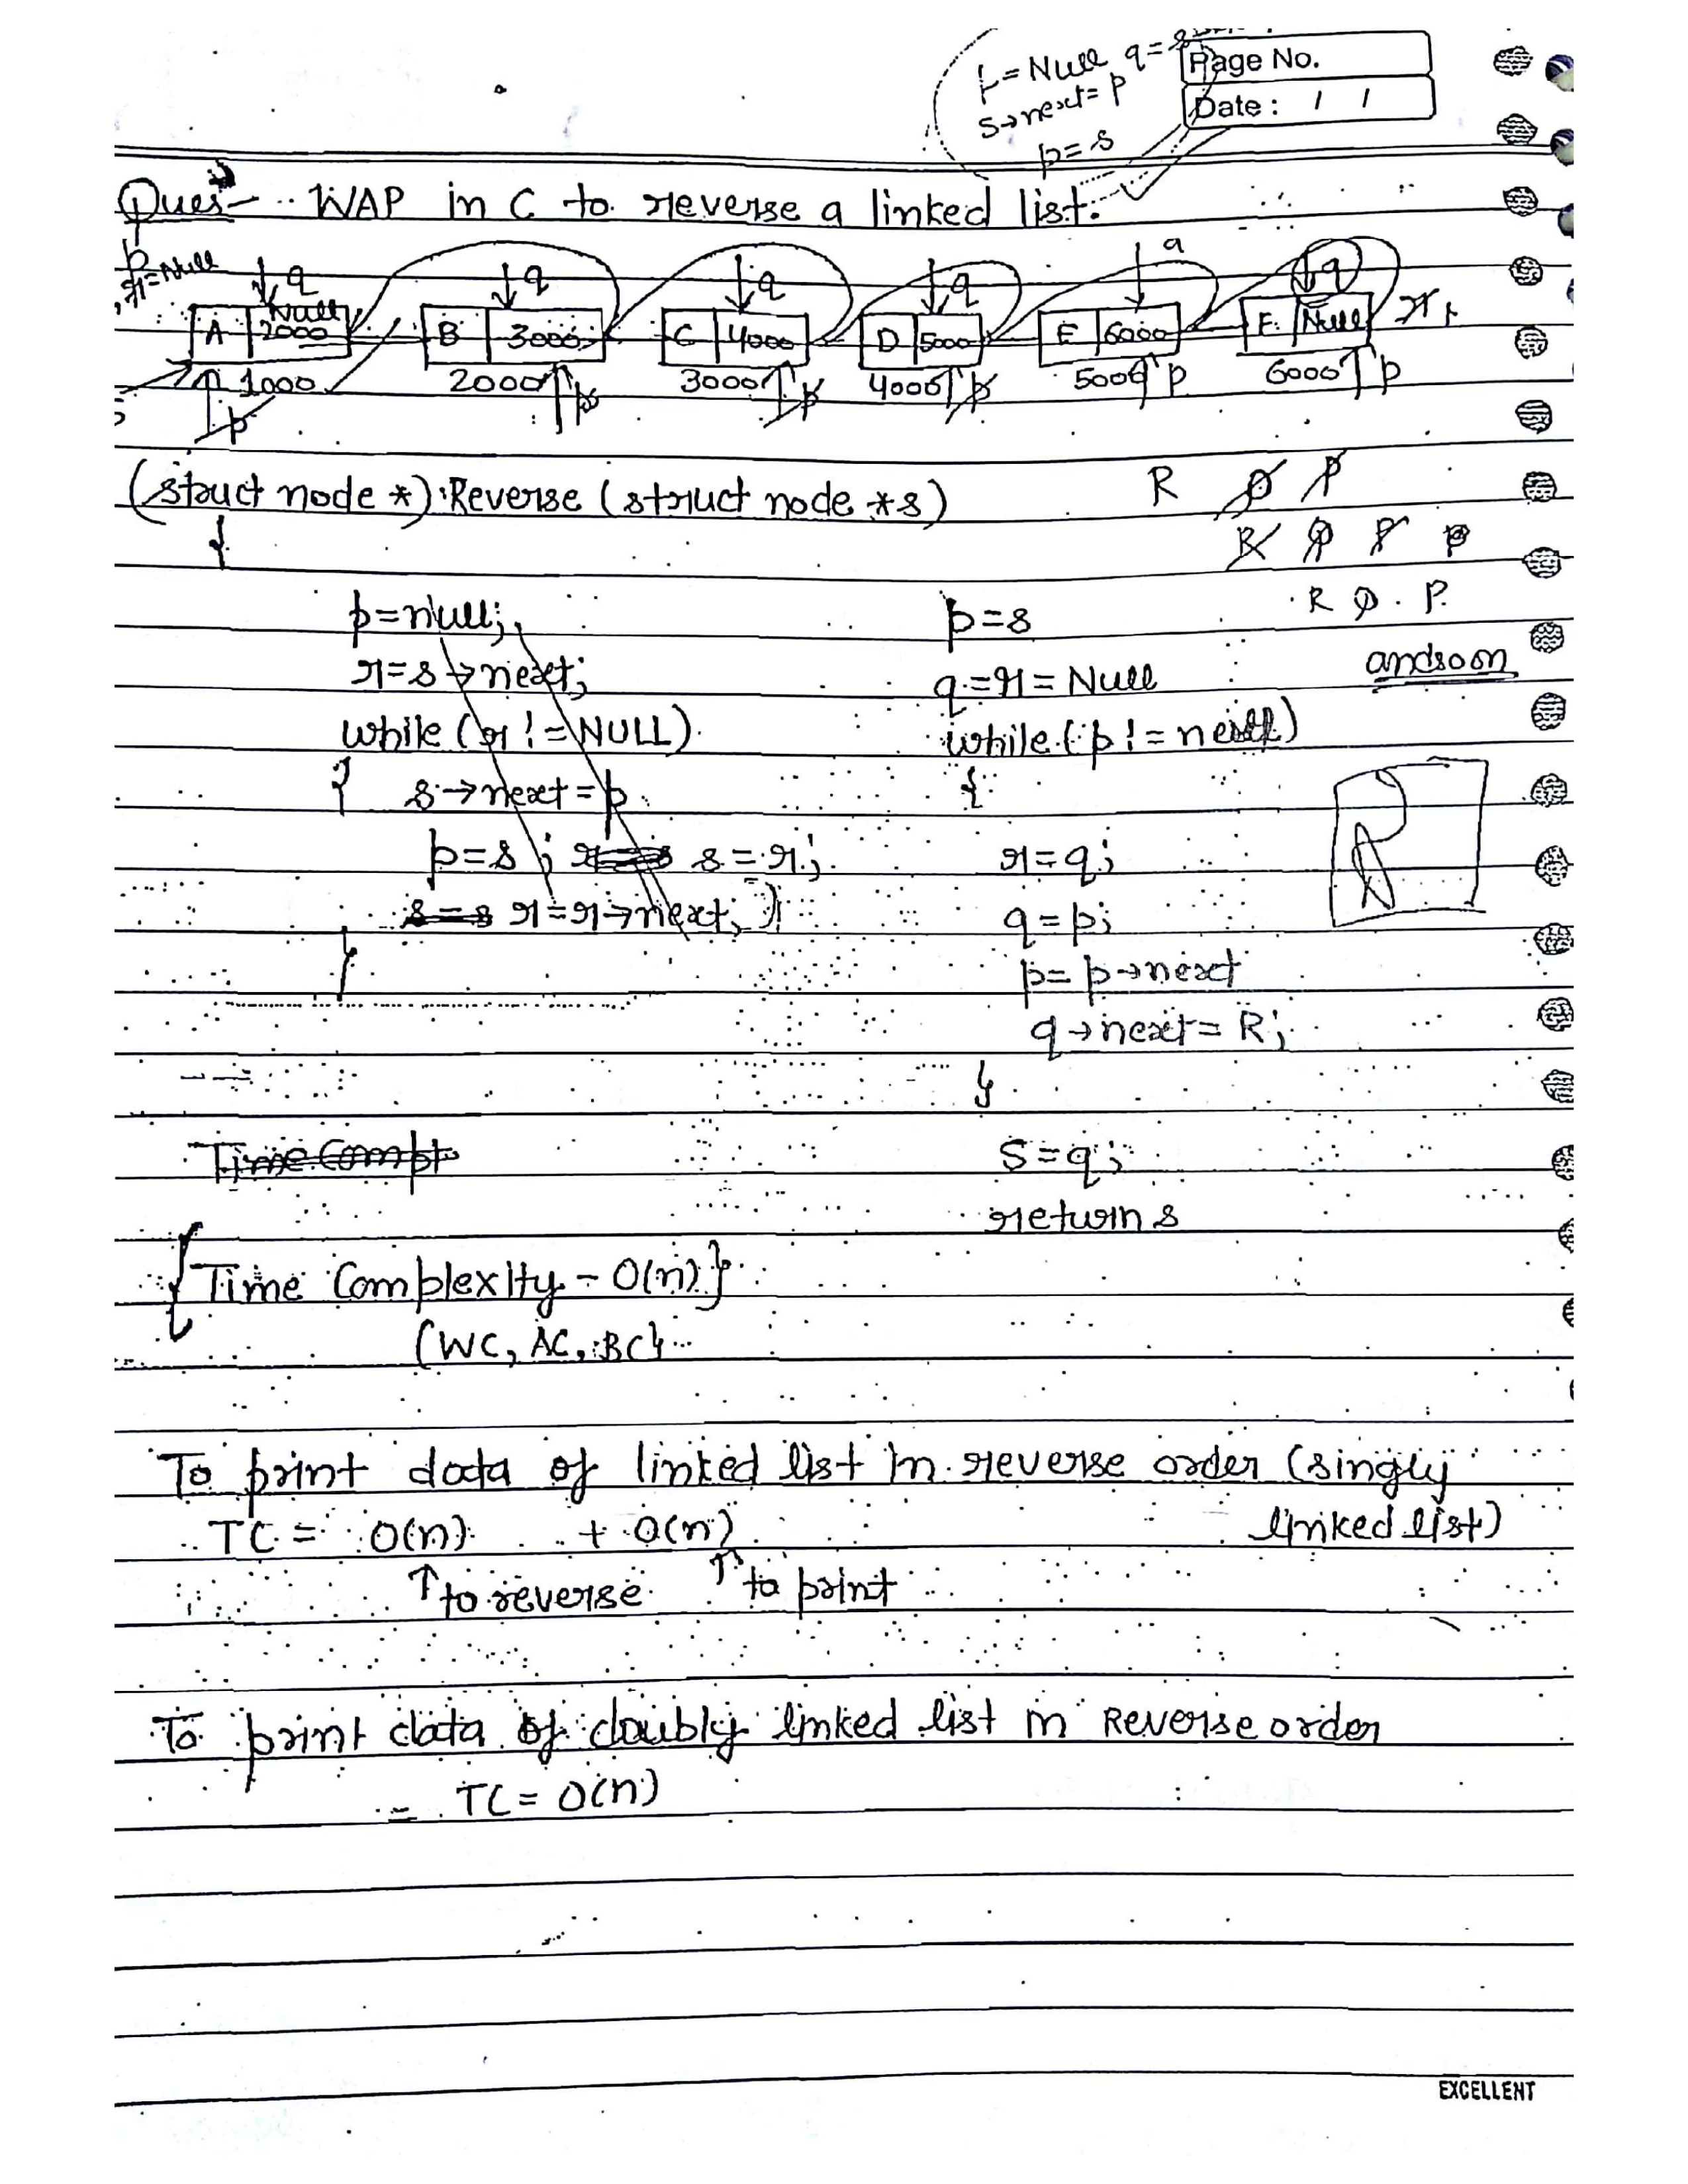 p=Null q=
s→next= p
p=s
Page No.
Date : / /
Ques- WAP in C to reverse a linked list.
p
r=Null q q q q q q
Null
A 2000 B 3000 C 4000 D 5000 E 6000 F Null
1000 2000 p 3000 p 4000 p 5000 p 6000 p
p
(struct node *) Reverse (struct node *s)
{
R Q P
R Q P P
R Q P
and so on
p=null;
r=s→next;
while (r != NULL)
{ s→next = p
p=s ; s=r;
r=r→next; }
}
p=s
q=r=Null
while (p!=
{
r=q;
q=p;
p= p→next
q→next= R;
}
S=q;
return s
Time Compt
{Time Complexity - O(n)}
(WC, AC, BC)
To print data of linked list in reverse order (singly
linked list)
TC = O(n) + O(n)
↑ to reverse ↑ to print
To print data of doubly linked list in Reverse order
= TC = O(n)
EXCELLENT